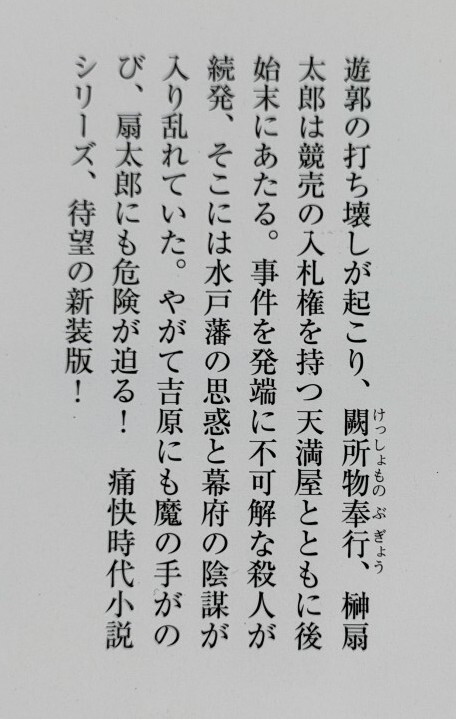 遊郭の打ち壊しが起こり、闕所物奉行、榊扇
けっしょもの ぶ ぎょう
太郎は競売の入札権を持つ天満屋とともに後
始末にあたる。事件を発端に不可解な殺人が
続発、そこには水戸藩の思惑と幕府の陰謀が
入り乱れていた。やがて吉原にも魔の手がの
び、扇太郎にも危険が迫る！　痛快時代小説
シリーズ、待望の新装版！